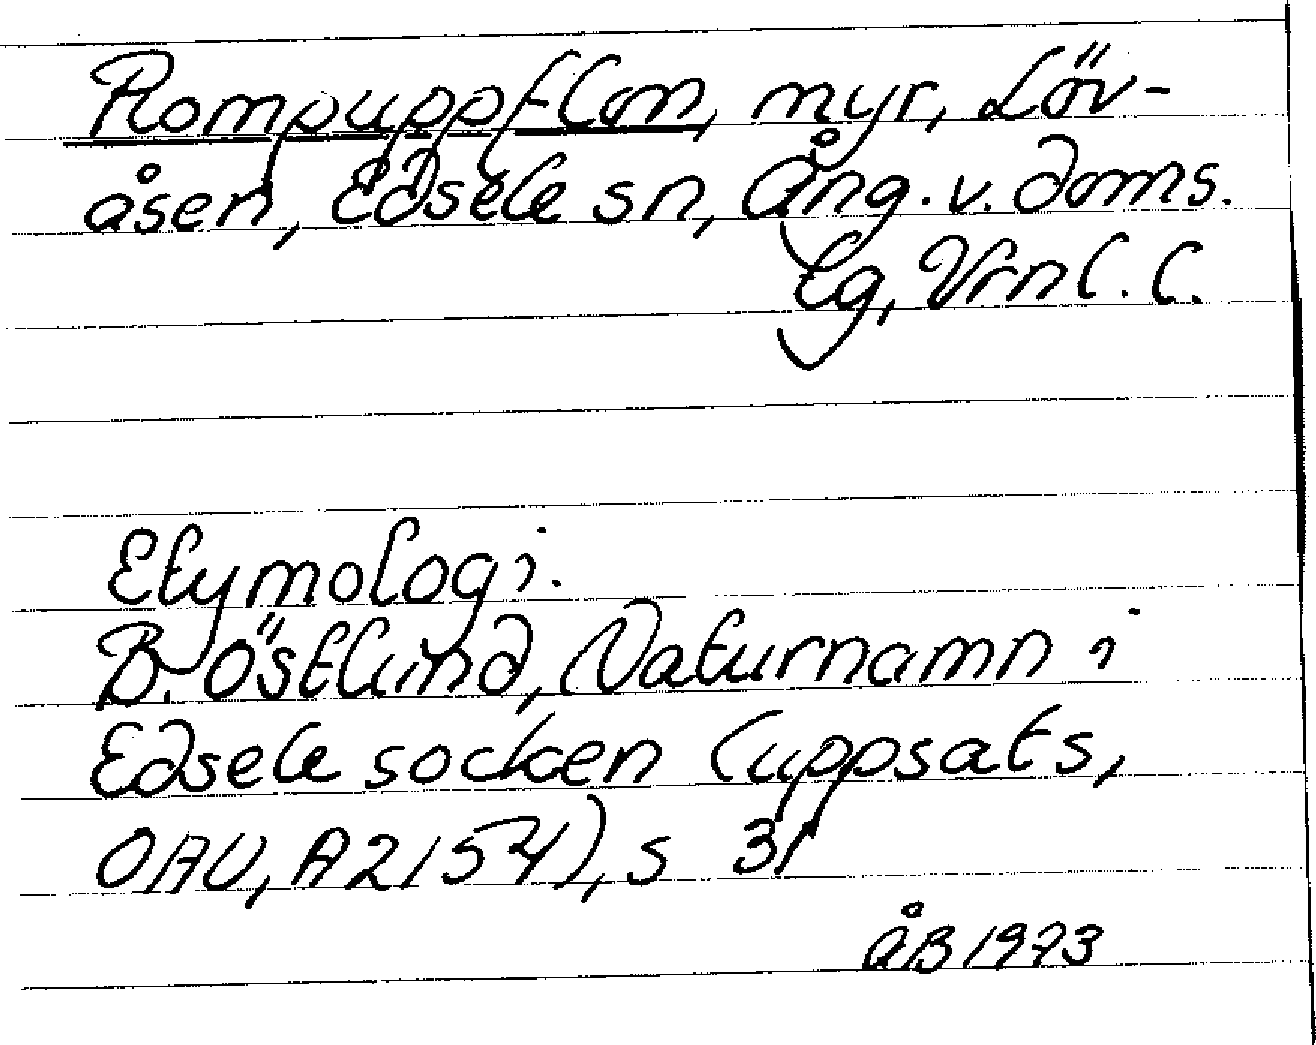 Rompuppflon, myr, Löv-
åsen, Edsele sn, Ång. v. doms.
lg, Vrnl. l.
Etymologi.
B. Östlund, Naturnamn i
Edsele socken (uppsats,
OAU, A2154), s 31
ÅB 1973